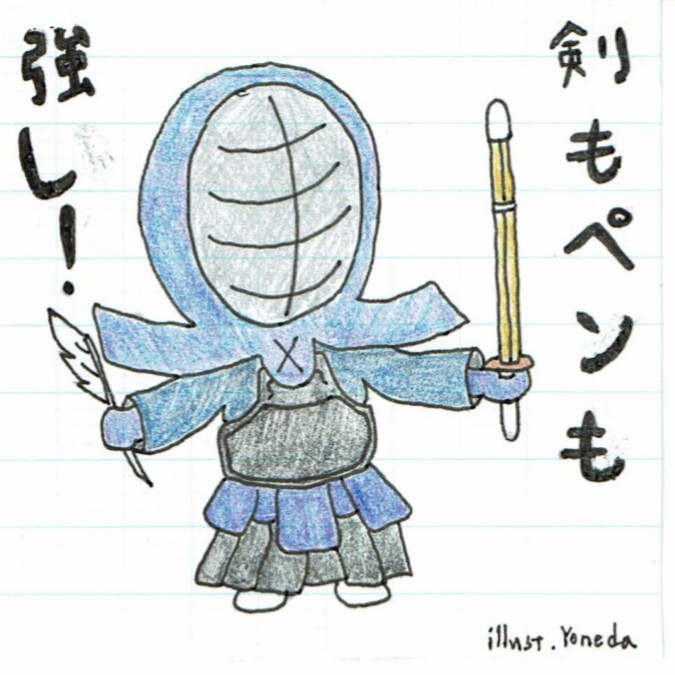 剣もペンも
強し!
illust. Yoneda